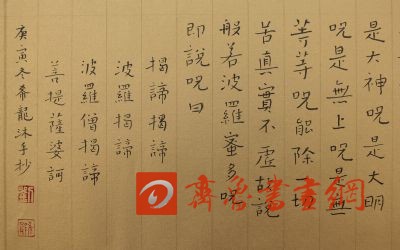 是大神呪是大明
呪是無上呪是無
等等呪能除一切
苦真實不虛故說
般若波羅蜜多呪
即說呪曰
揭諦揭諦
波羅揭諦
波羅僧揭諦
菩提薩婆訶
庚寅冬希龍沐手抄
齊魯書畫網